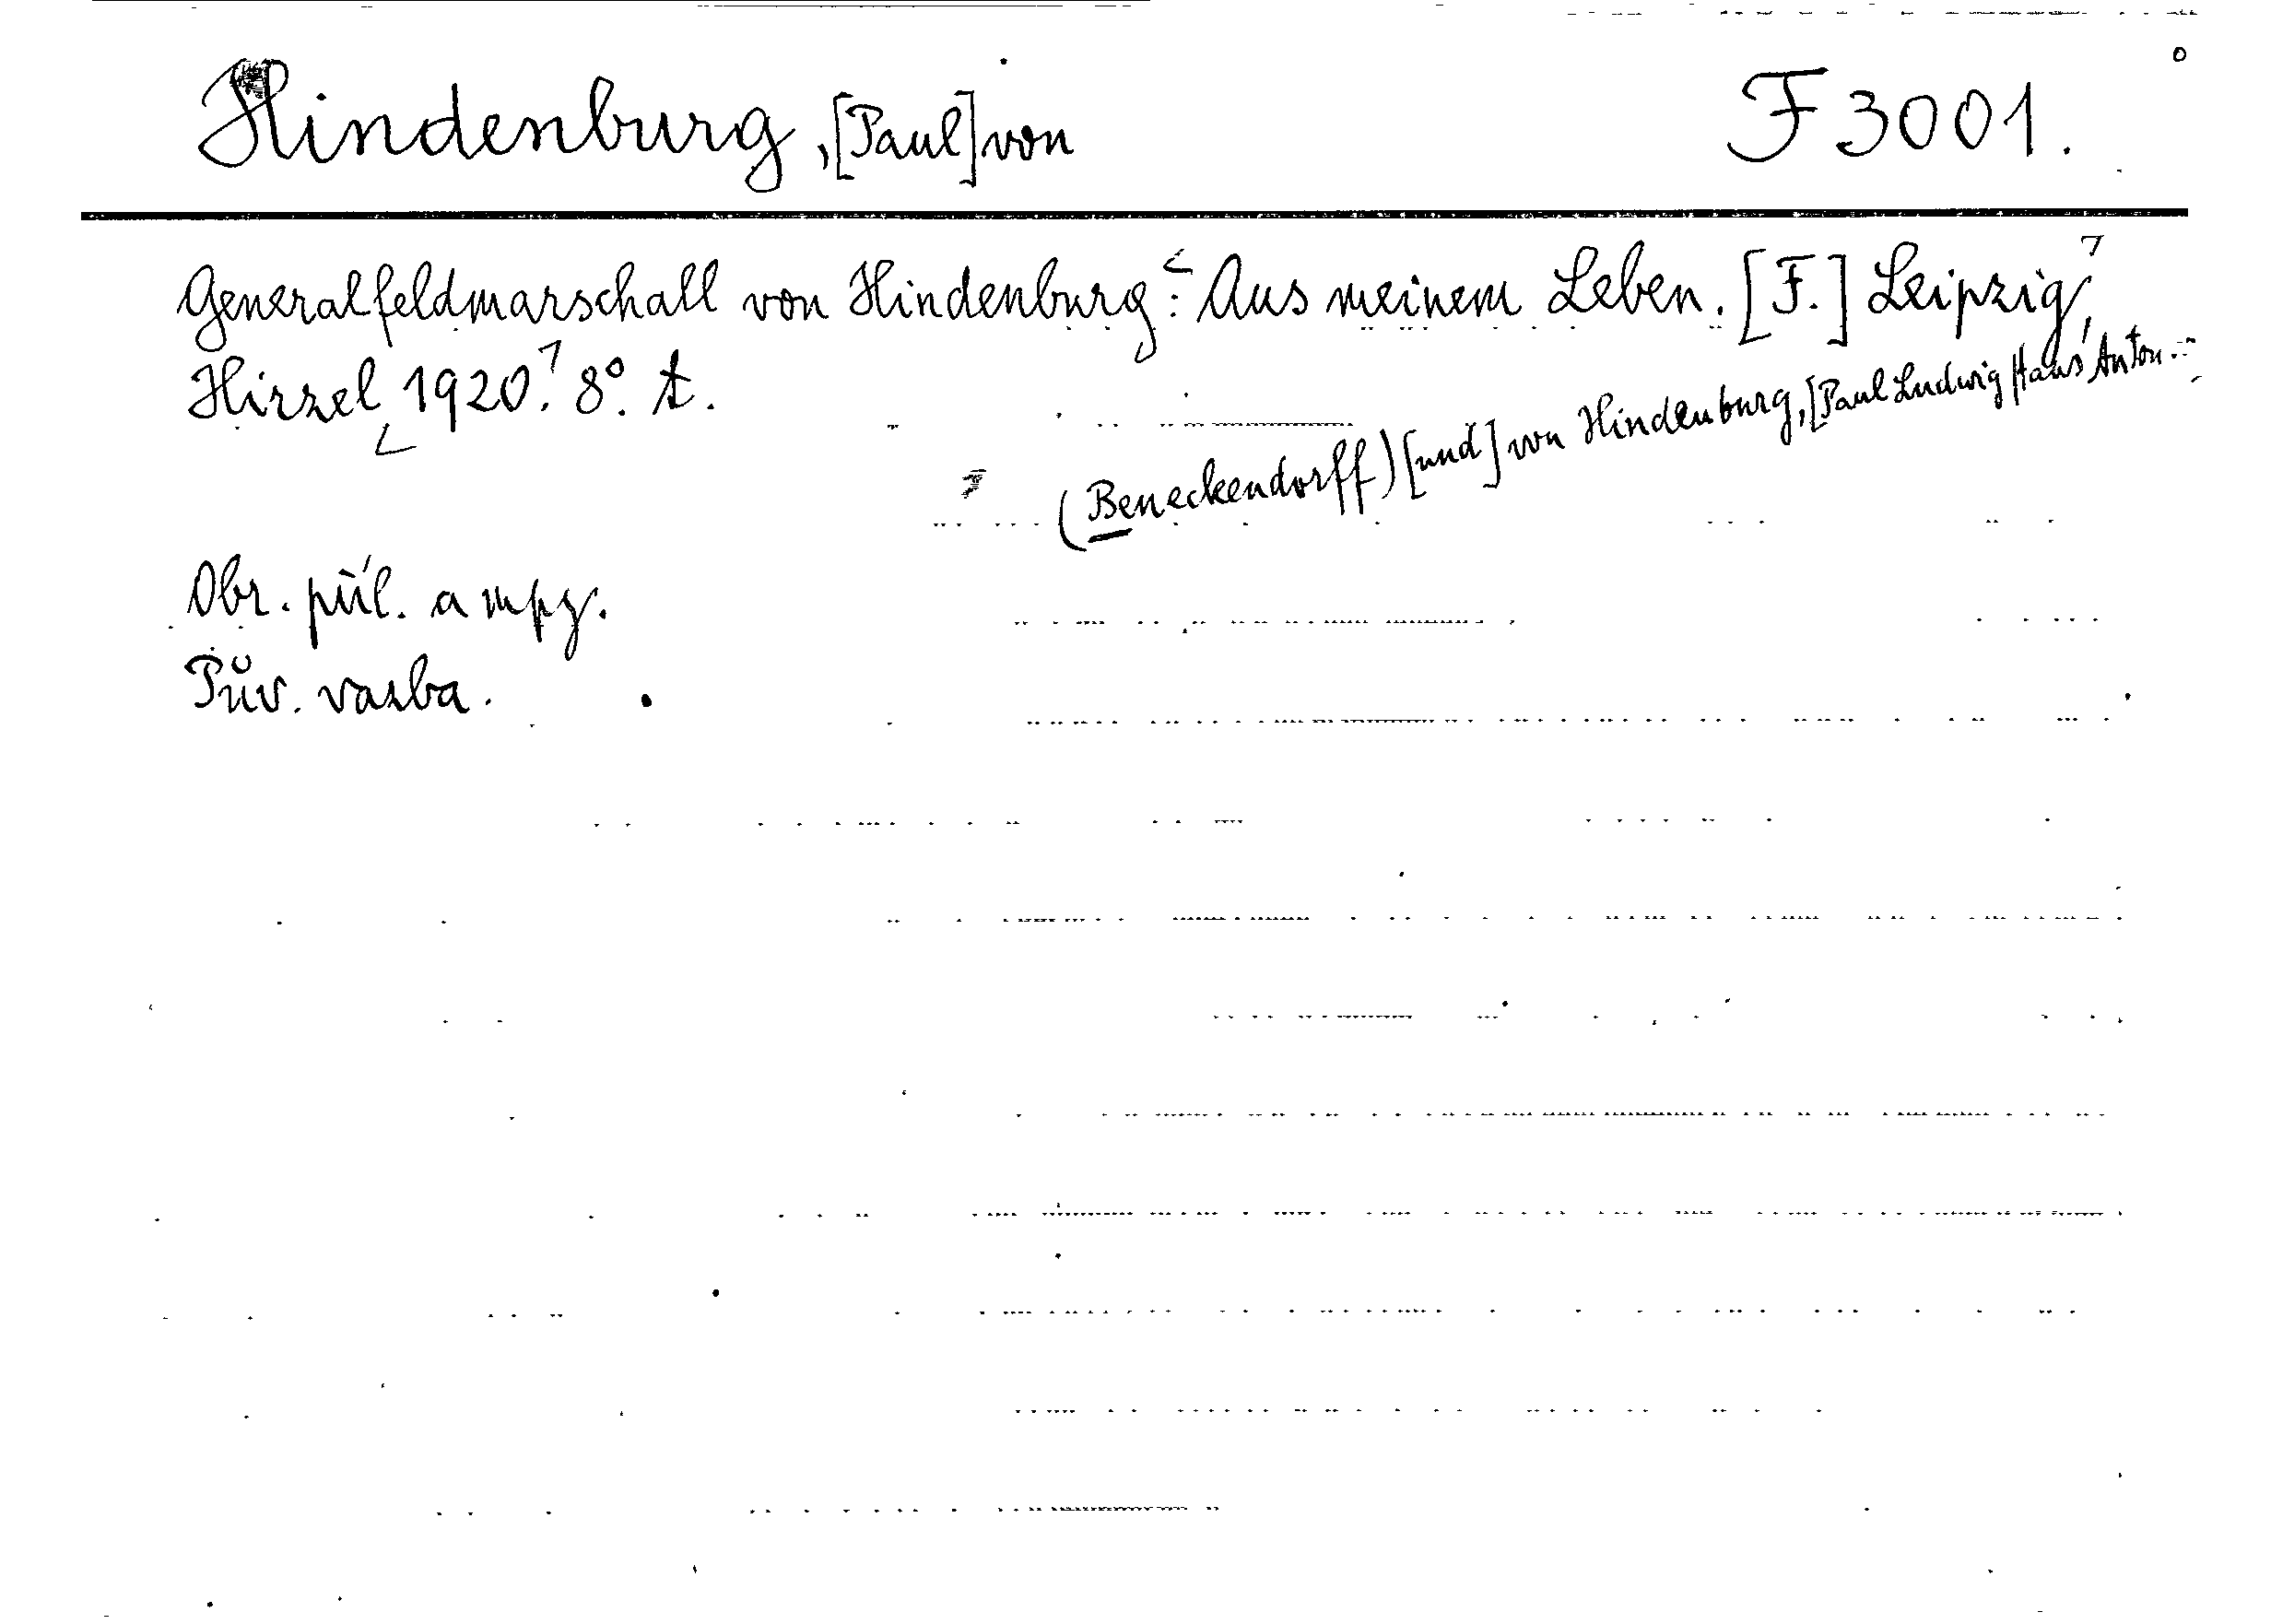 Hindenburg, [Paul] von F 3001.
Generalfeldmarschall von Hindenburg: Aus meinem Leben. [F.] Leipzig,
Hirzel 1920. 8°. t.
(Beneckendorff) [und] von Hindenburg, [Paul Ludwig Hans Anton
Obr. příl. a mpg.
Pův. vazba.